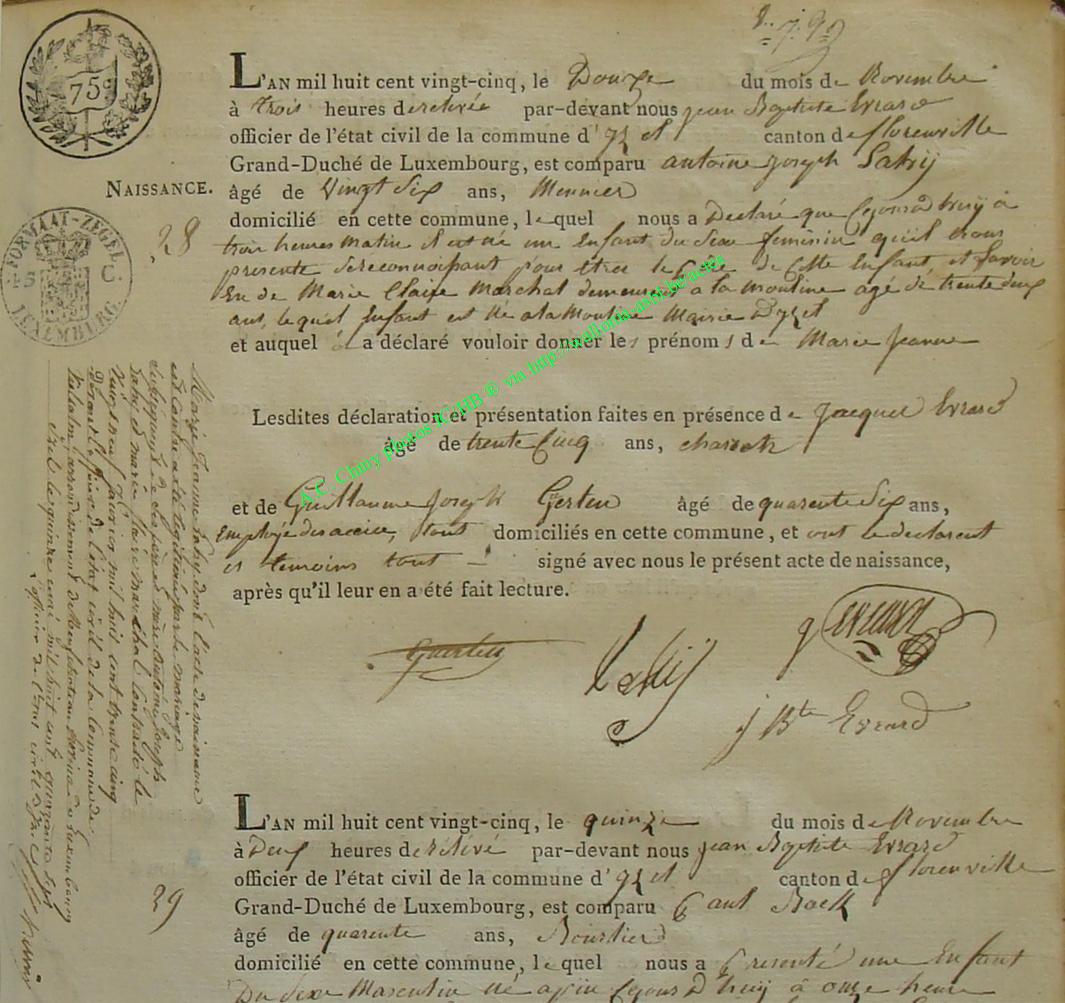 75
L'AN mil huit cent vingt-cinq, le Douze du mois de Novembre
à trois heures de relevée par-devant nous jean Baptiste Evrard
officier de l'état civil de la commune d'yzel canton de florenville
Grand-Duché de Luxembourg, est comparu antoine joseph Lahij
NAISSANCE. âgé de Vingt Six ans, Meunier
domicilié en cette commune, lequel nous a Declaré que Cejourd huij à
28
FORMAAT-ZEGEL
LUXEMBURG
trois heures Matin il est né un Enfant du Sexe feminin qu'il nous
presente Se reconnoissant pour être le Pere de Cette Enfant et Savoir
En de Marie Claire Marchal demeurant à la Mouline agé de trente deux
ant, lequel Enfant est né a la Mouline Mairie Dyzel
et auquel il a déclaré vouloir donner les prénoms de Marie jeanne
Lesdites déclaration et présentation faites en présence de jacques Evrard
âgé de trente Cinq ans,
et de Guillaume joseph Gerten âgé de quarente Six ans,
Employé des accises, tout domiciliés en cette commune, et ont le declarent
et temoins tout signé avec nous le présent acte de naissance,
après qu'il leur en a été fait lecture.
Lahij
j Bte Evrard
A.E. Chiny photos ICHB ® via http://wallonia.asbl.be/actes
Marie Jeanne Lahij dont l'acte de naissance
est Contre a été légitimée par le mariage
subséquent de ses père et mère antoine joseph
Lahij et marie Claire marechal Contracté le
Vingt neuf janvier mil huit cent trente cinq
devant l'officier de l'état civil de la Commune de
arrondissement de Neufchateau province de Luxembourg
le quinze mai mil huit cent quarante sept
L'officier de l'état civil
L'AN mil huit cent vingt-cinq, le quinze du mois de Novembre
à Deux heures de relevé par-devant nous jean Baptiste Evrard
officier de l'état civil de la commune d'yzel canton de florenville
29
Grand-Duché de Luxembourg, est comparu
âgé de quarente ans,
domicilié en cette commune, lequel nous a presenté une Enfant
Du Sexe Masculin né Cejourd huij à onze heure